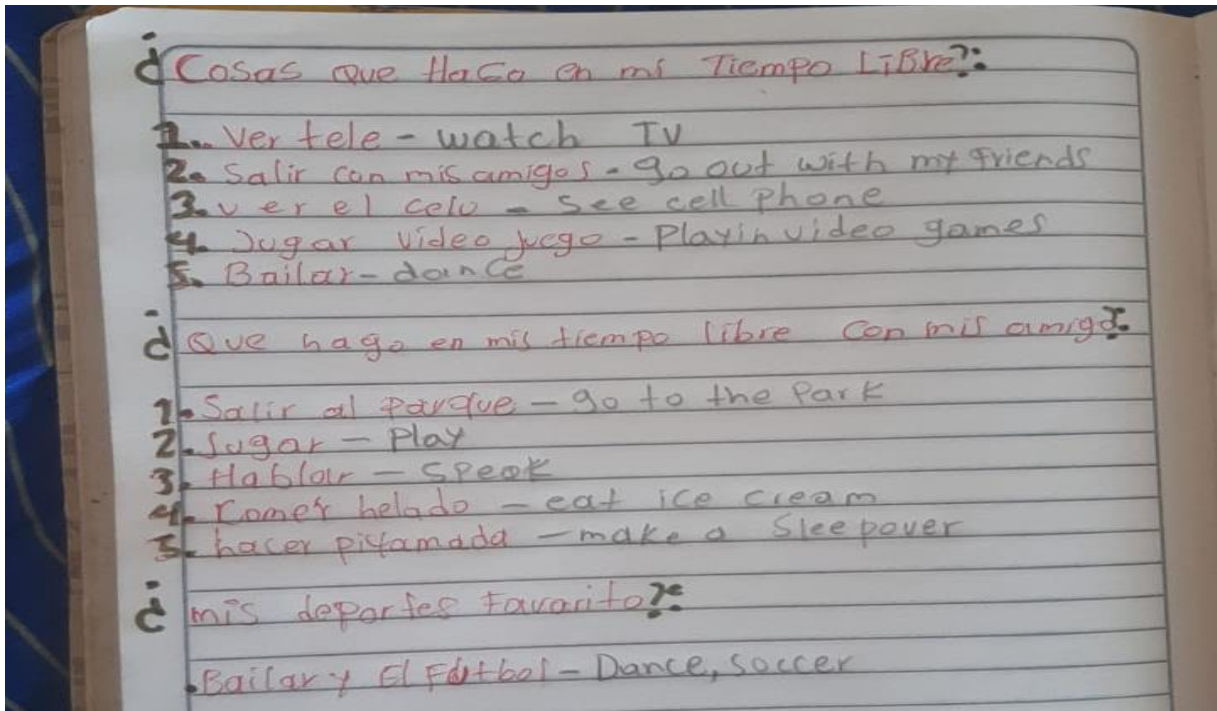 ¿Cosas que Hago en mi Tiempo Libre?:
1. Ver tele - watch TV
2. Salir con mis amigos - go out with my friends
3. ver el celu - See cell phone
4. Jugar video juego - Playin video games
5. Bailar - dance
¿Que hago en mis tiempo libre con mis amigo?
1. Salir al parque - go to the Park
2. Jugar - Play
3. Hablar - Speak
4. Comer helado - eat ice cream
5. hacer piyamada - make a Sleepover
¿mis deportes favorito?
.Bailar y El Fútbol - Dance, soccer